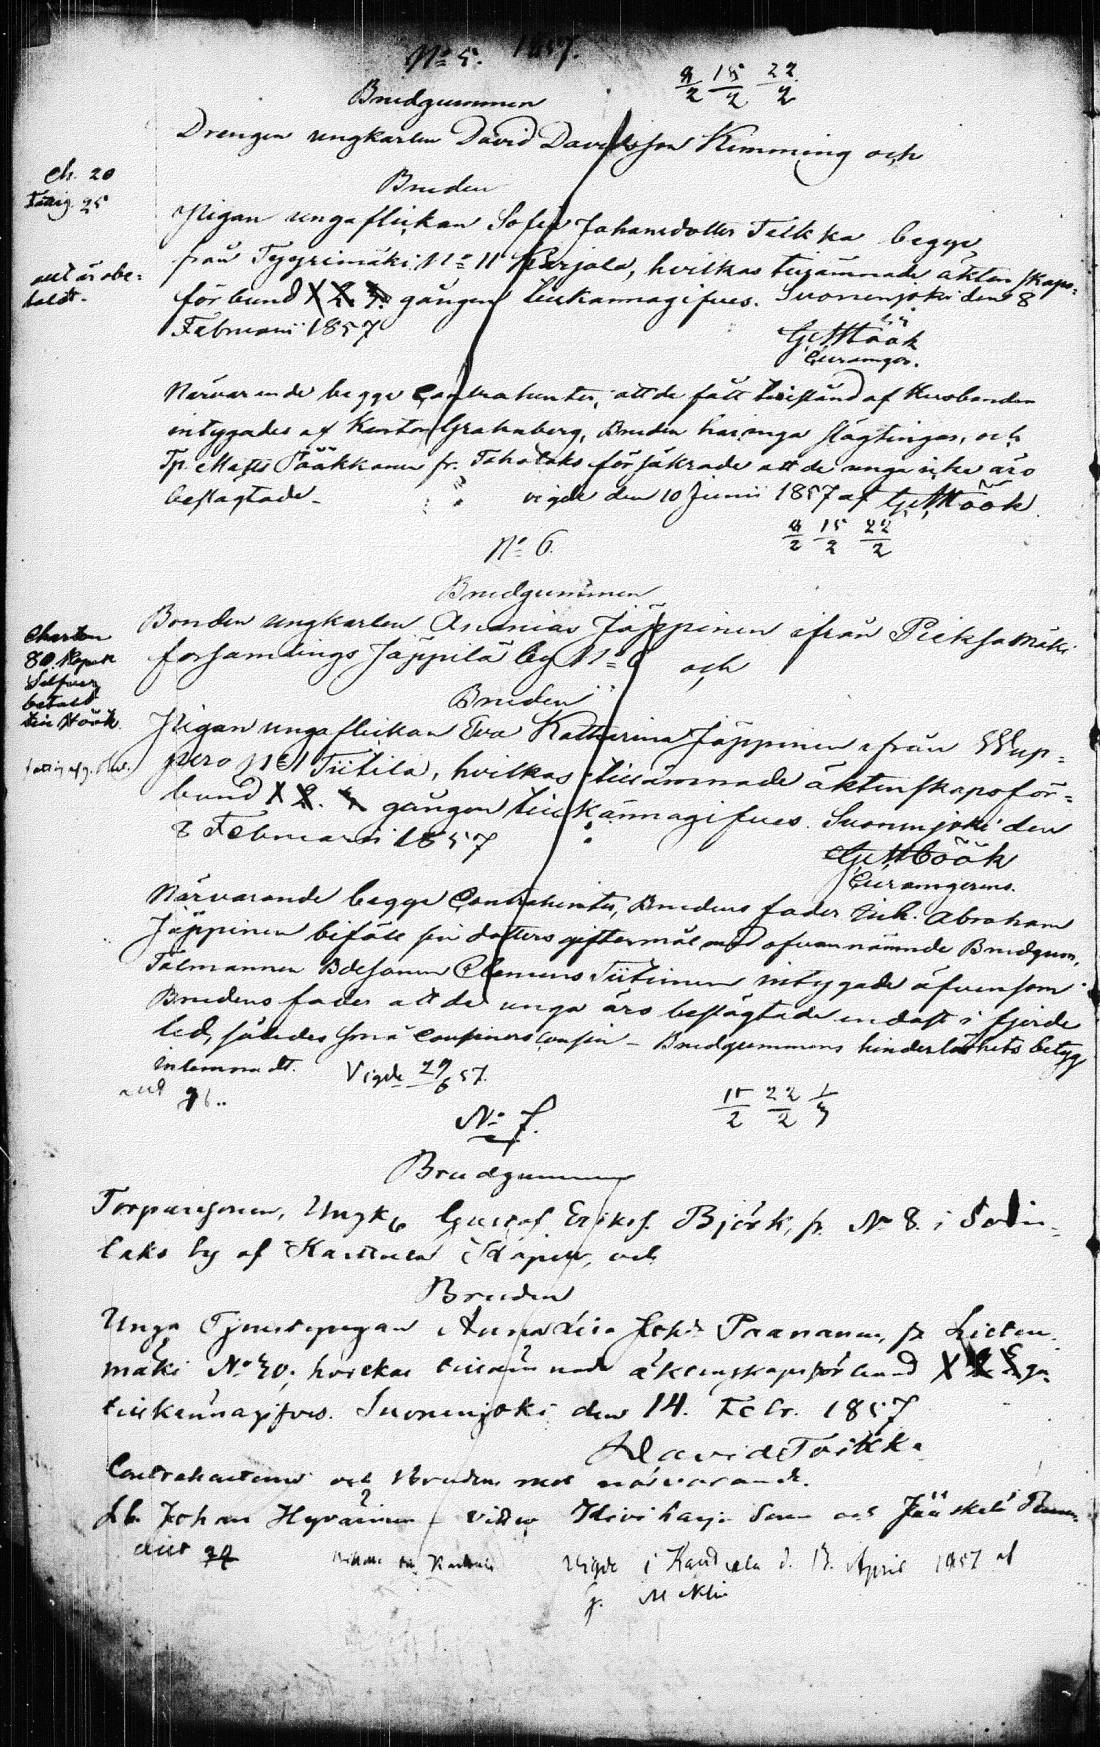 No 5. 1857.
8/2 15/2 22/2
Brudgummen
Drengen ungkarlen David Davidsson Kimming och
Ch. 20
Fattig. 25
Bruden
Pigan unga flickan Sofia Johansdotter Telkka begge
från Tyyrimäki No 11 Karjala, hvilkas tillämnade äktenskaps-
allt är obe-
taldt.
förbund X 2. 3. gången tillkännagifves. Suonenjoki den 8
Februarii 1857
G Höök
Närvarande begge Contrahenter, att de fått tillstånd af Husbonden
intygades af Kantor Grahnberg, Bruden har inga slägtingar, och
Matts Pääkkönen fr. försäkrade att de unga icke äro
beslägtade. vigde den 10 Junii 1857 af G Höök.
8/2 15/2 22/2
No 6.
Brudgummen
Bonden ungkarlen Ananias Jäppinen ifrån Pieksämäki
församlings Jäppilä by No 6 och
Charton
80 Kopek
Silfver
betalt
till Höök.
Bruden
Pigan unga flickan Eva Katharina Jäppinen ifrån
No 1 Tiitilä, hvilkas tillämnade äktenskapsför-
bund X 2. 3. gången tillkännagifves. Suonenjoki den
8 Februarii 1857
G Höök
Närvarande begge Contrahenter, Brudens fader Abraham
Jäppinen biföll sin dotters giftermål med ofvannämnde Brudgum,
Talmannen Clemens Tiitinen intygade äfvensom
Brudens fader att de unga äro beslägtade endast i fjerde
led, således små Cousiners Cousin – Brudgummens hinderlöshets betyg
inlemnadt. Vigde 29/6 57.
15/2 22/2 1/3
No 7.
Brudgummen
Torparesonen, Ungk. Gustaf Eriks. Björk, fr. No 8. i
laks by af Karttula Kapell, och
Bruden
Unga Tjenstepigan Anna Lisa Johd. Paananen, fr Lieten-
mäki No 20; hvilkas tillämnade äktenskapsförbund X 2 3 gn.
tillkännagifves. Suonenjoki den 14. Febr. 1857
David Toikka.
Contrahenterne och Brudens mor närvarande.
Johan Hyvärinen
Vigde i Karttula d. 13. April 1857 af